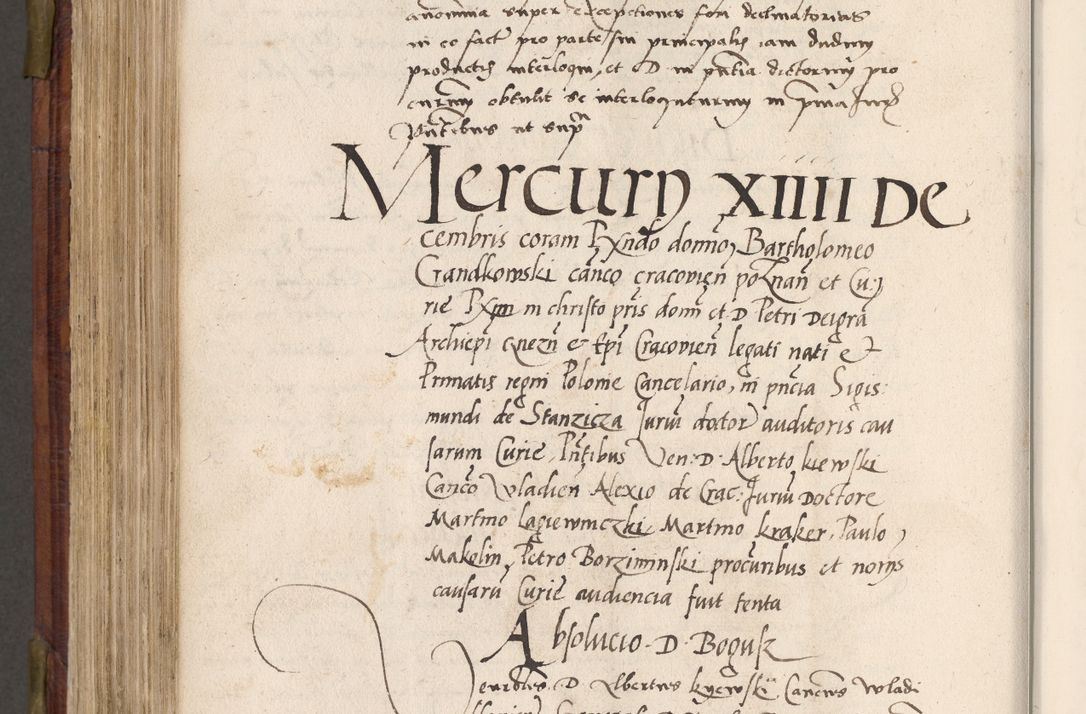 anomnia super exceptiones fori declinatorias
in eo fact pro parte sui principalis iam dudum
productis interloqui, et D. in pntia dictorum pro
curm obtulit se interloquuturum in pma Jurid
Pntibus ut supra
Mercurÿ XIIII De
cembris coram Rxndo domno Bartholomeo
Gandkowski canco cracovien poznan et Cu:
rie Rxmi in christo pris domi et D Petri Deigra
Archiepi gnezn & Epi Cracovien legati nati et
Primatis regni Polonie Cancelario, in pncia Sigis:
mundi de Stanzicza Juriu doctore auditoris cau
sarum Curie, Pntibus Ven: D: Alberto kiewski
Canco Wladien Alexio de Crac: Juriu Doctore
Martino Lagiewniczki, Martino kraker, Paulo
Makolin, Petro Borziminski procuribus et noriis
causaru Curie audiencia fuit tenta
Absolucio D Bogusz
Venerablis D Albertus kyewski Cancus Wladi